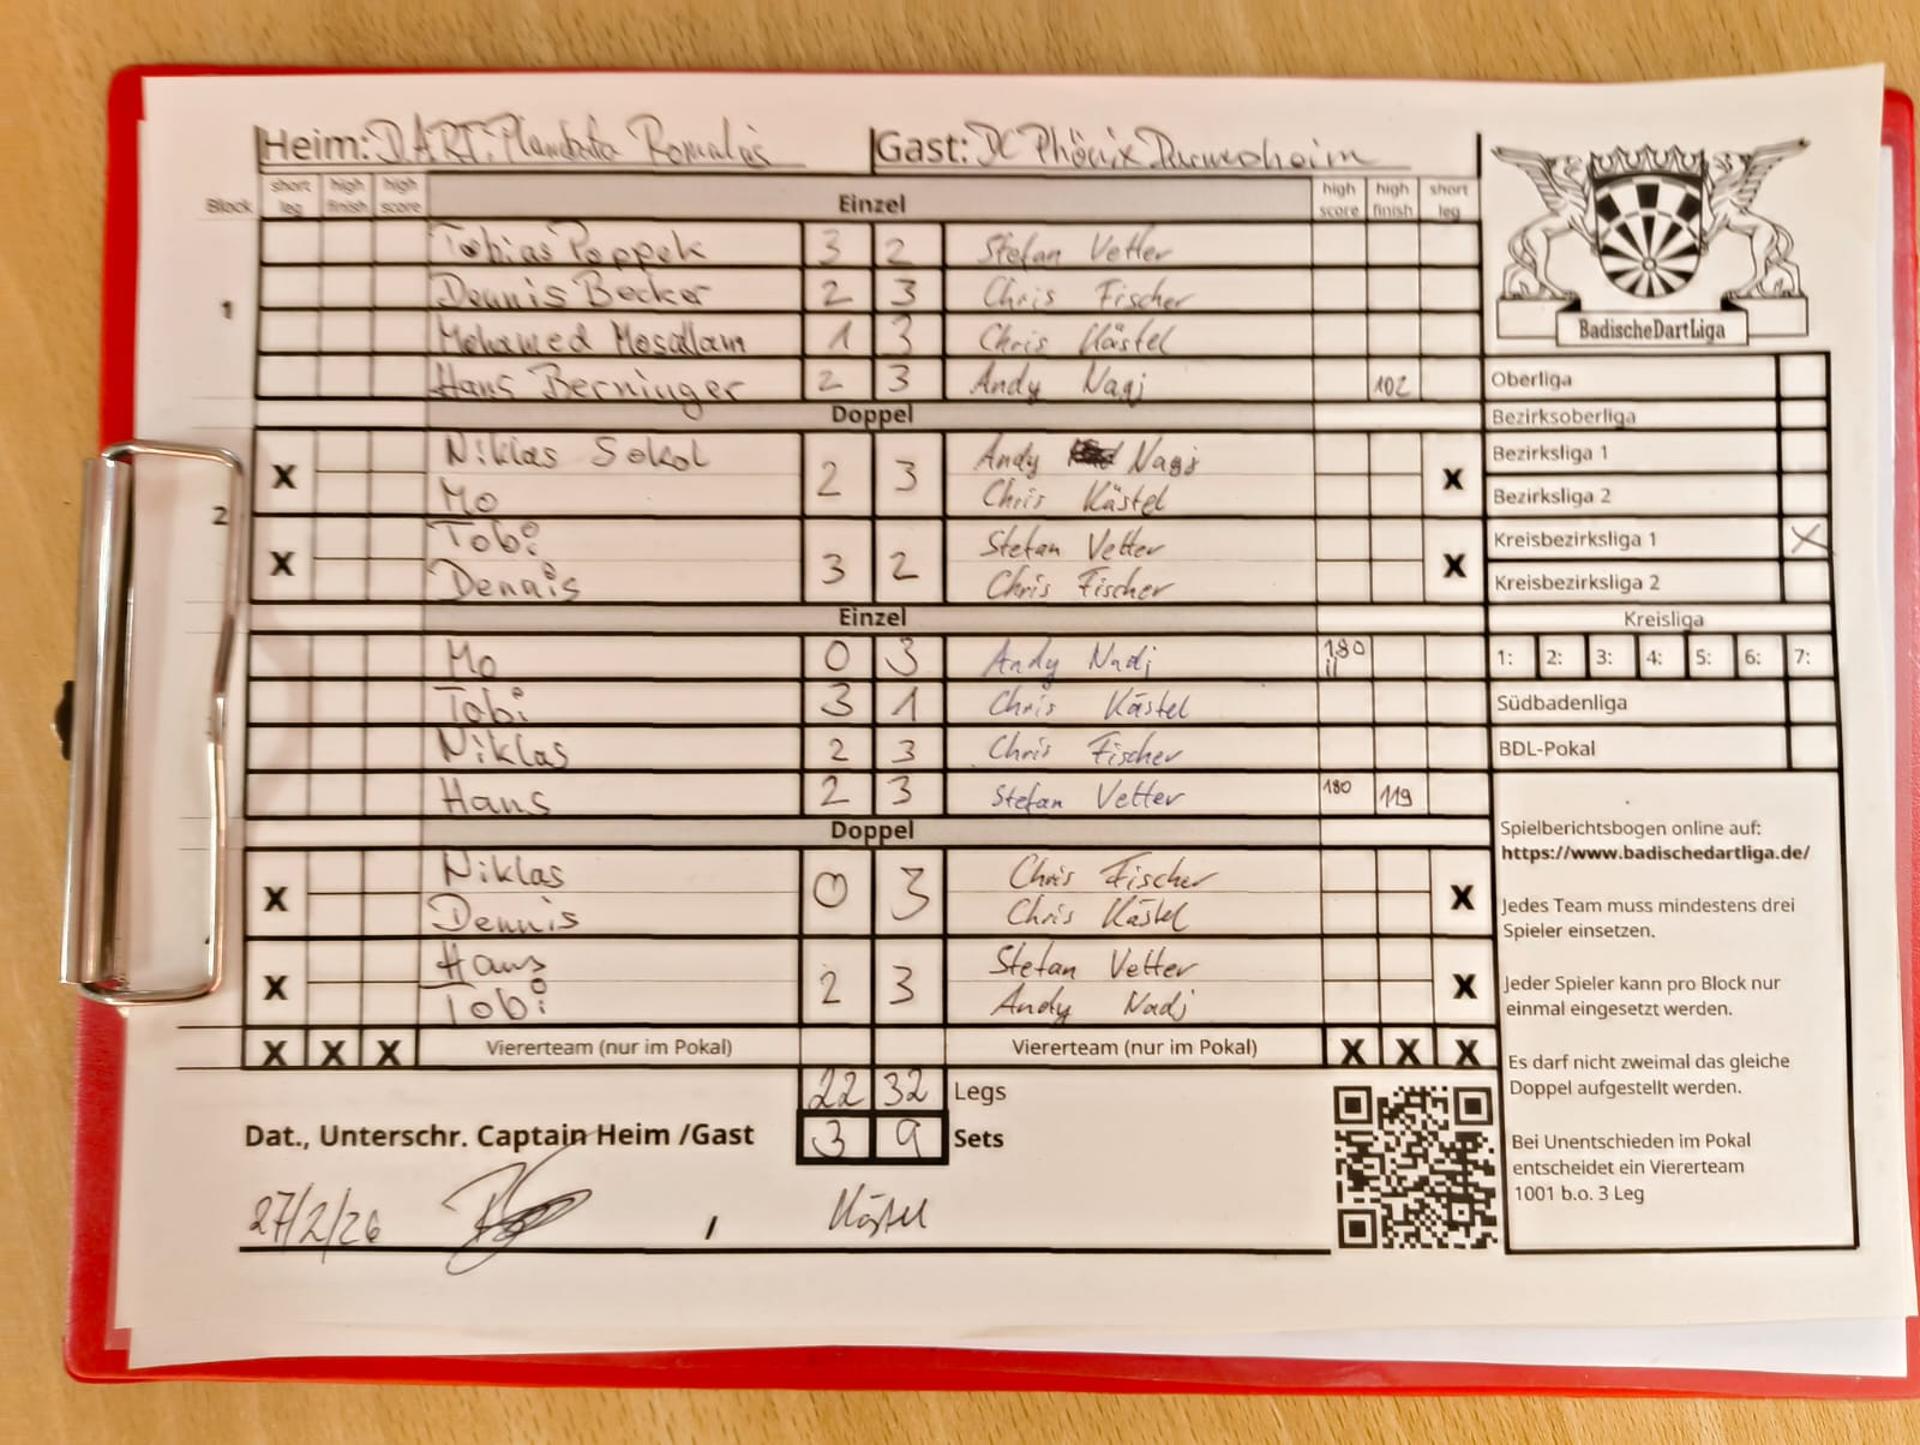 Heim: D.A.R.T. Plambata Romalas Gast: DC Phönix Durmersheim
Block short leg high finish high score Einzel high score high finish short leg
Tobias Poppek 3 2 Stefan Vetter
1
Dennis Becker 2 3 Chris Fischer
Mohamed Mosallam 1 3 Chris Kästel
Hans Berninger 2 3 Andy Nagj 102
Doppel
Niklas Sokol Andy Nagj
X 2 3 X
Mo Chris Kästel
2
Tobi Stefan Vetter
X 3 2 X
Dennis Chris Fischer
Einzel
Mo 0 3 Andy Nadj 180 II
Tobi 3 1 Chris Kästel
Niklas 2 3 Chris Fischer
Hans 2 3 Stefan Vetter 180 119
Doppel
Niklas Chris Fischer
X 0 3 X
Dennis Chris Kästel
Hans Stefan Vetter
X 2 3 X
Tobi Andy Nadj
X X X Viererteam (nur im Pokal) Viererteam (nur im Pokal) X X X
22 32 Legs
Dat., Unterschr. Captain Heim /Gast 3 9 Sets
27/2/26 , Kästel
BadischeDartLiga
Oberliga
Bezirksoberliga
Bezirksliga 1
Bezirksliga 2
Kreisbezirksliga 1 X
Kreisbezirksliga 2
Kreisliga
1: 2: 3: 4: 5: 6: 7:
Südbadenliga
BDL-Pokal
Spielberichtsbogen online auf:
https://www.badischedartliga.de/
Jedes Team muss mindestens drei
Spieler einsetzen.
Jeder Spieler kann pro Block nur
einmal eingesetzt werden.
Es darf nicht zweimal das gleiche
Doppel aufgestellt werden.
Bei Unentschieden im Pokal
entscheidet ein Viererteam
1001 b.o. 3 Leg